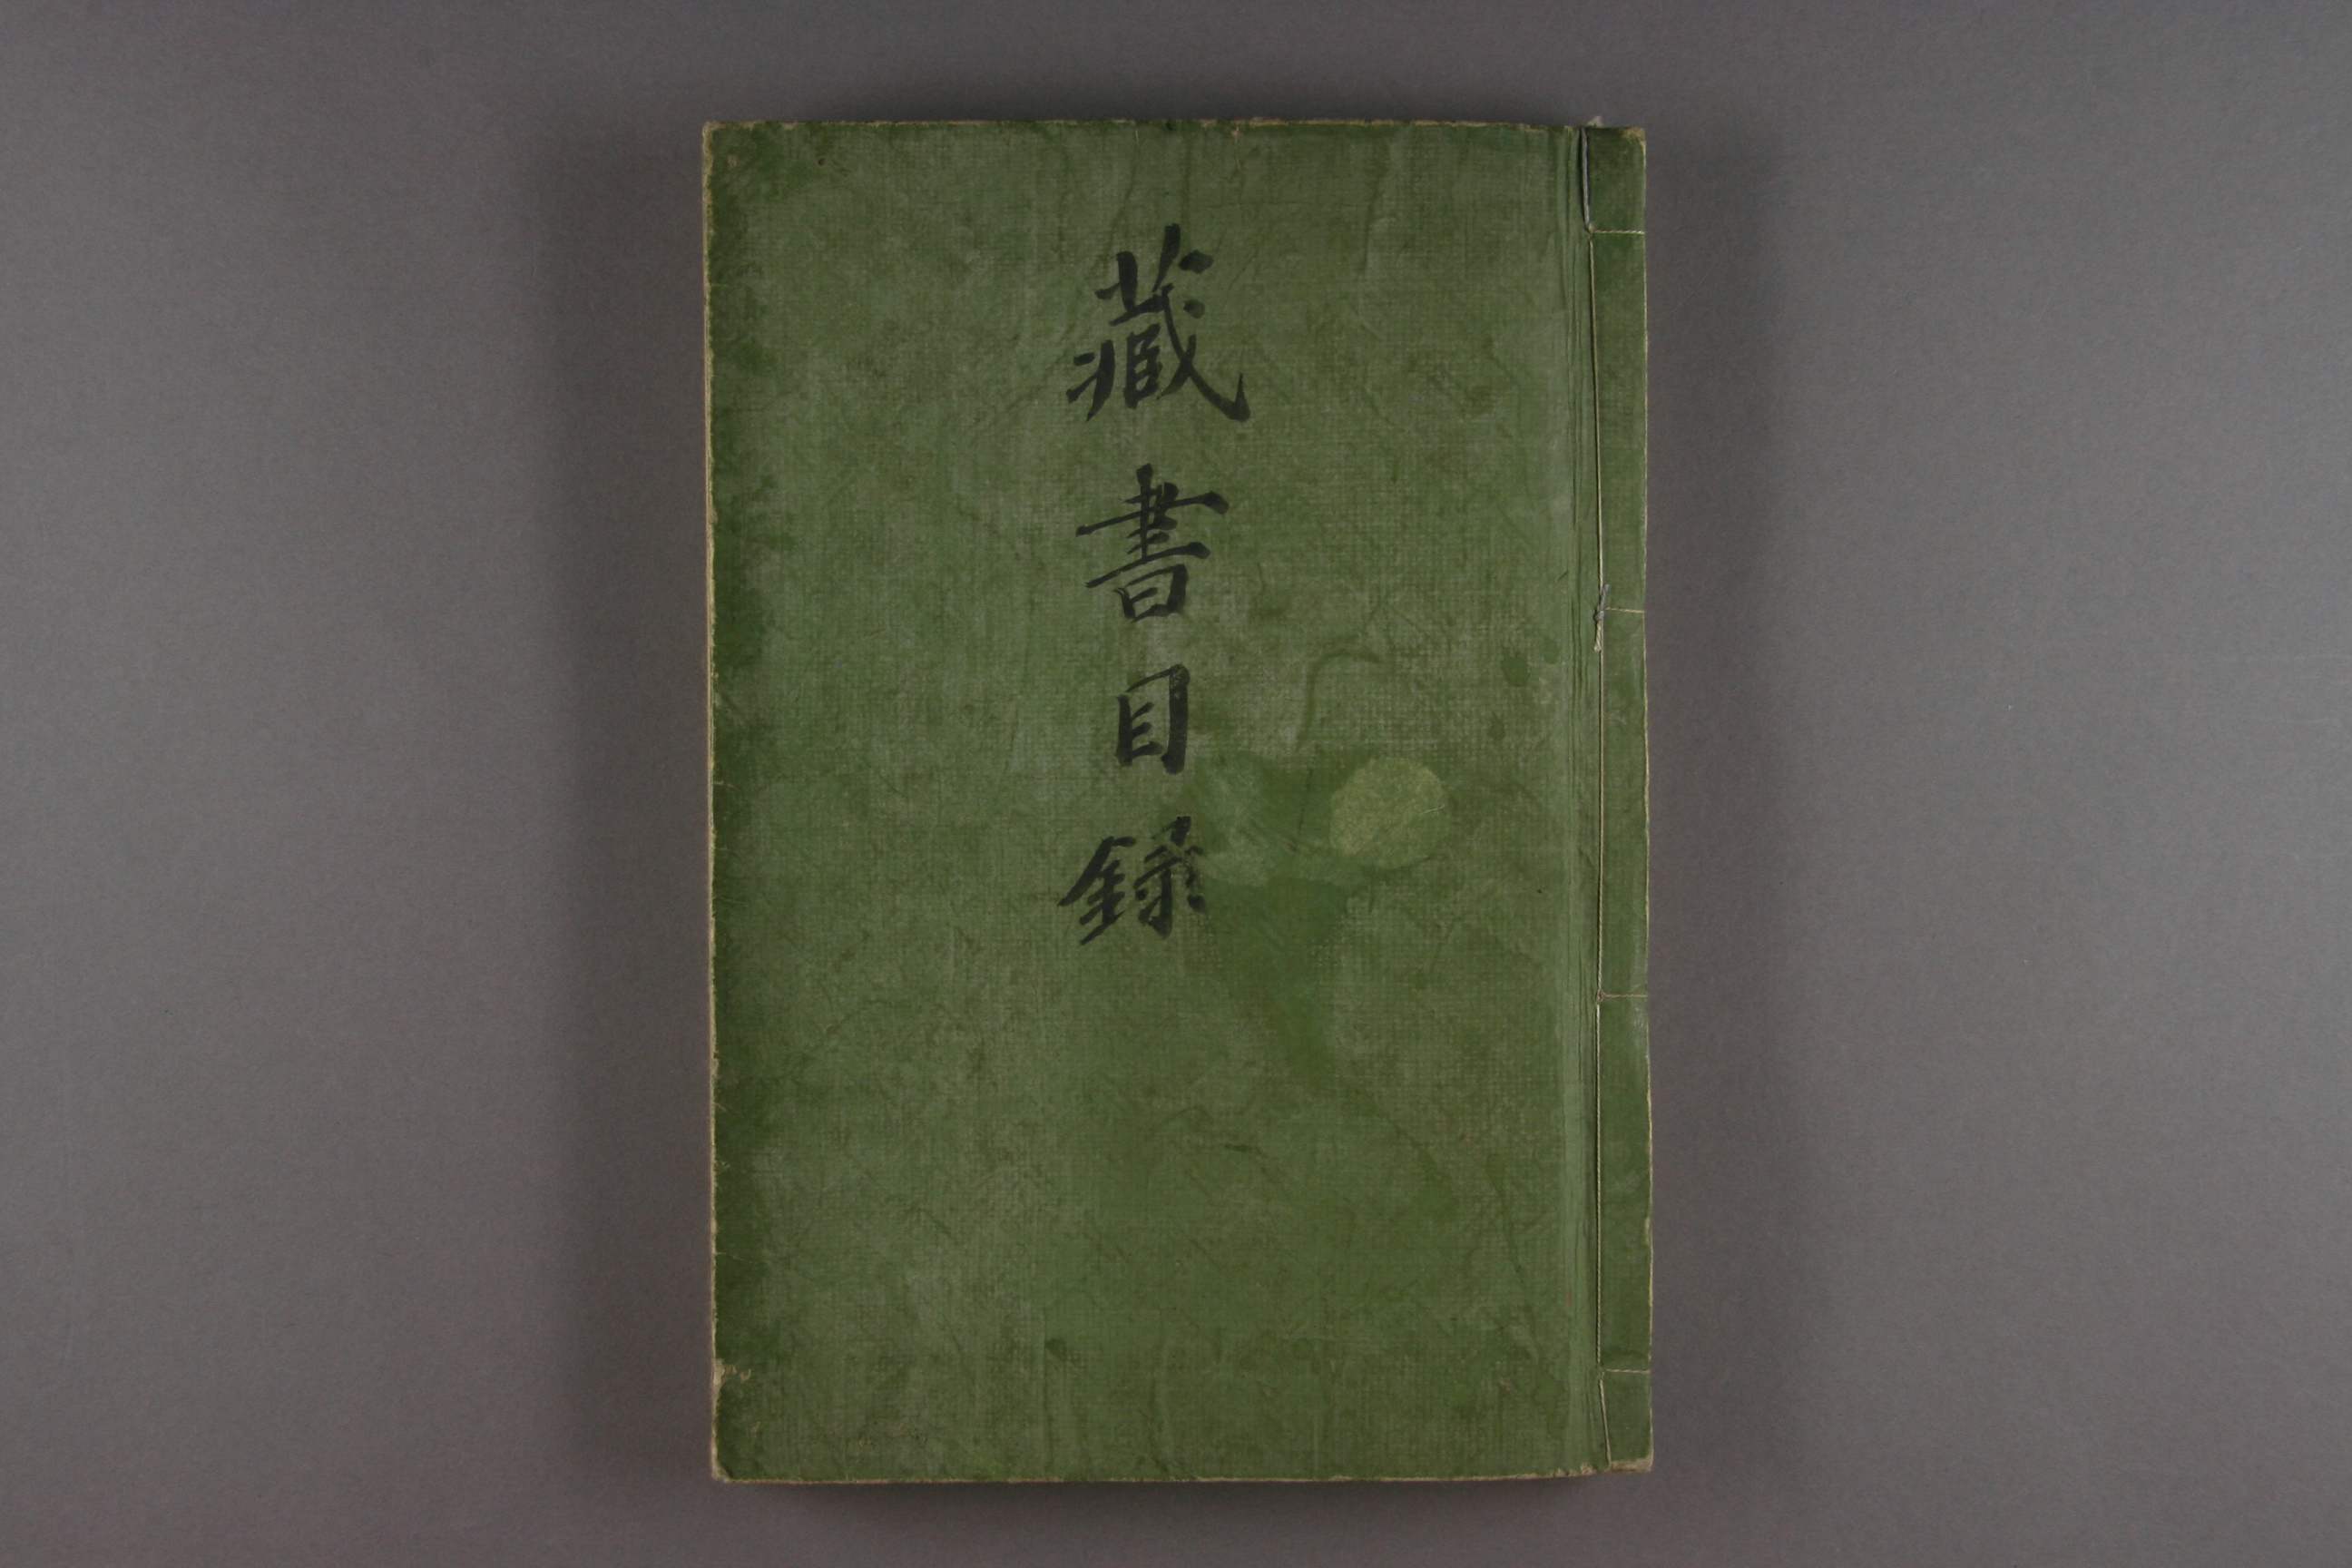 藏書目録